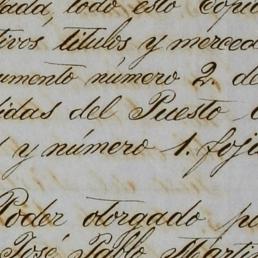 todo esto copia
titulos y merced
umento número 2. de
idas del Puesto
y número 1. foja
Poder otorgado p
José Pablo Martin